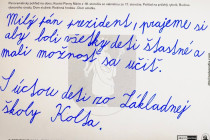 Milý pán prezident, prajeme si
aby boli všetky deti šťastné a
mali možnosť sa učiť.
S úctou deti zo Základnej
školy Kolta.